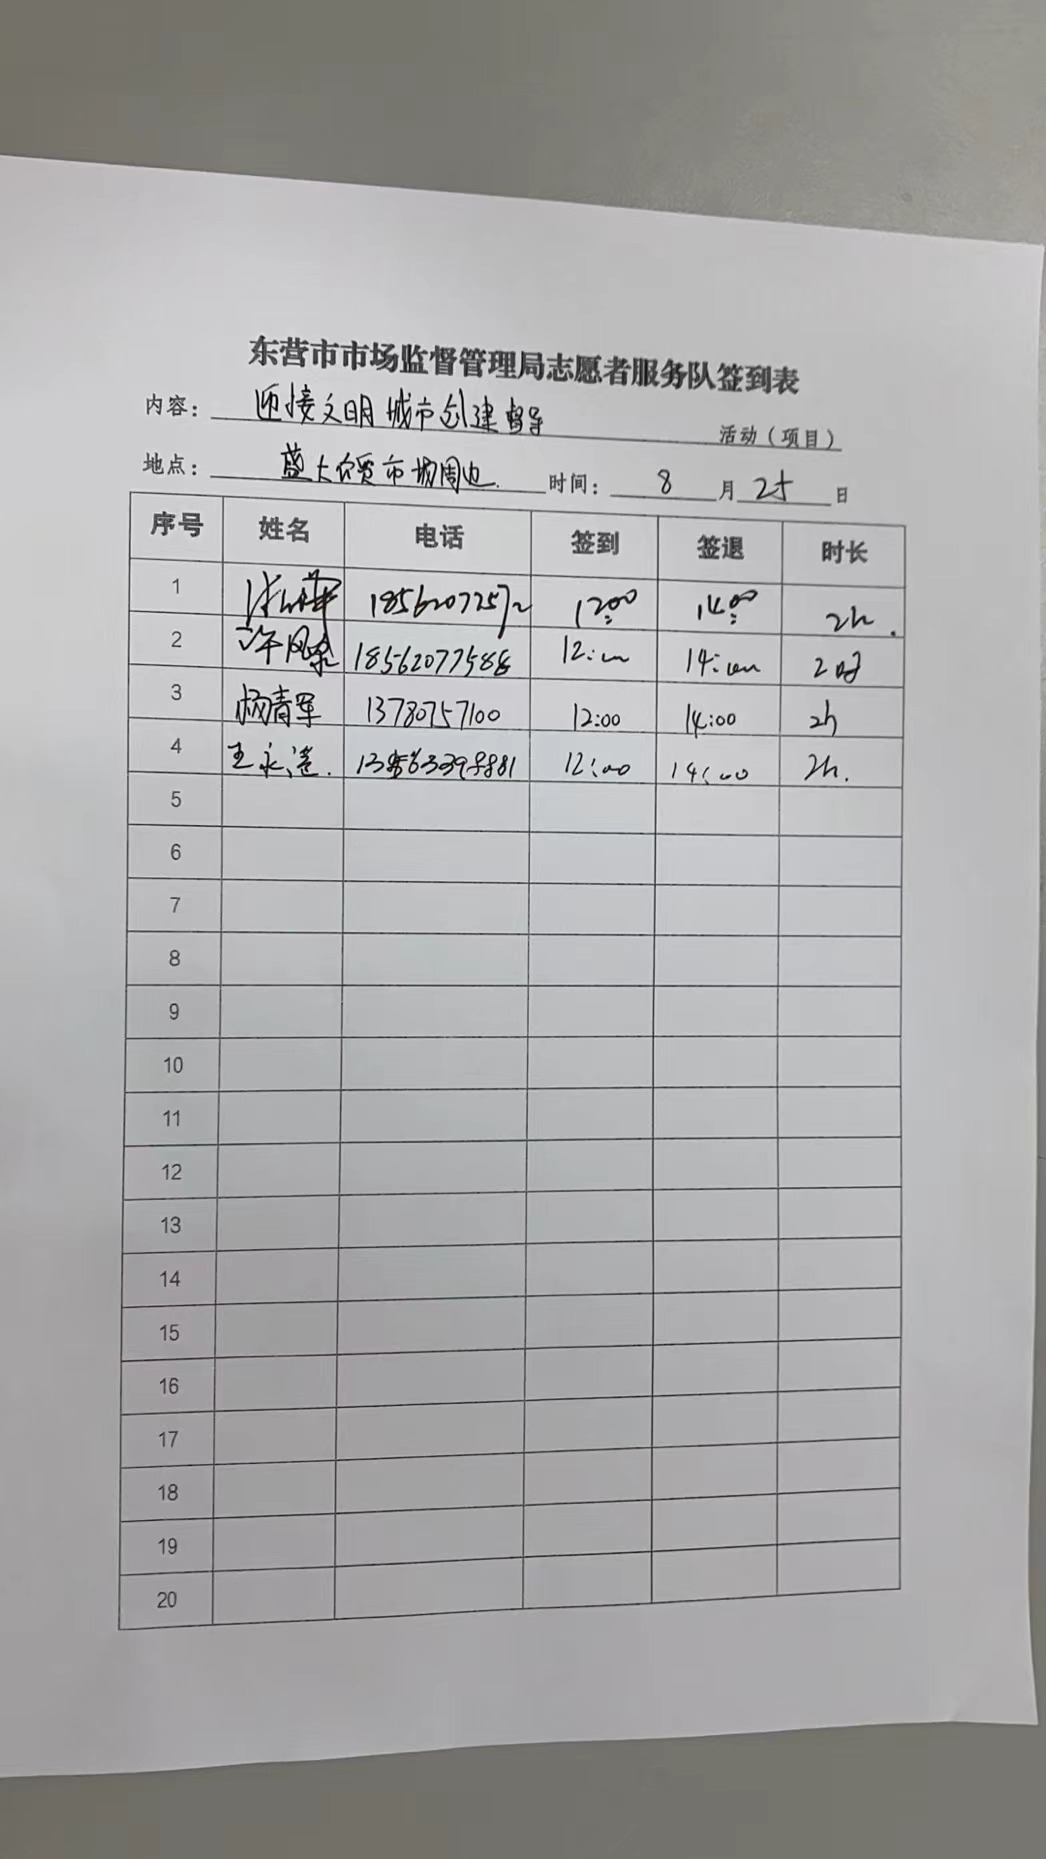 东营市市场监督管理局志愿者服务队签到表
内容： 迎接文明城市创建督导 活动（项目）
地点： 盛大农贸市场周边 时间： 8 月 25 日
序号 姓名 电话 签到 签退 时长
1 1856207257 12:00 14:00 2h.
2 许风泉 18562077588 12:00 14:00 2时
3 杨青军 13780757100 12:00 14:00 2h
4 王永 12:00 14:00 2h.
5
6
7
8
9
10
11
12
13
14
15
16
17
18
19
20